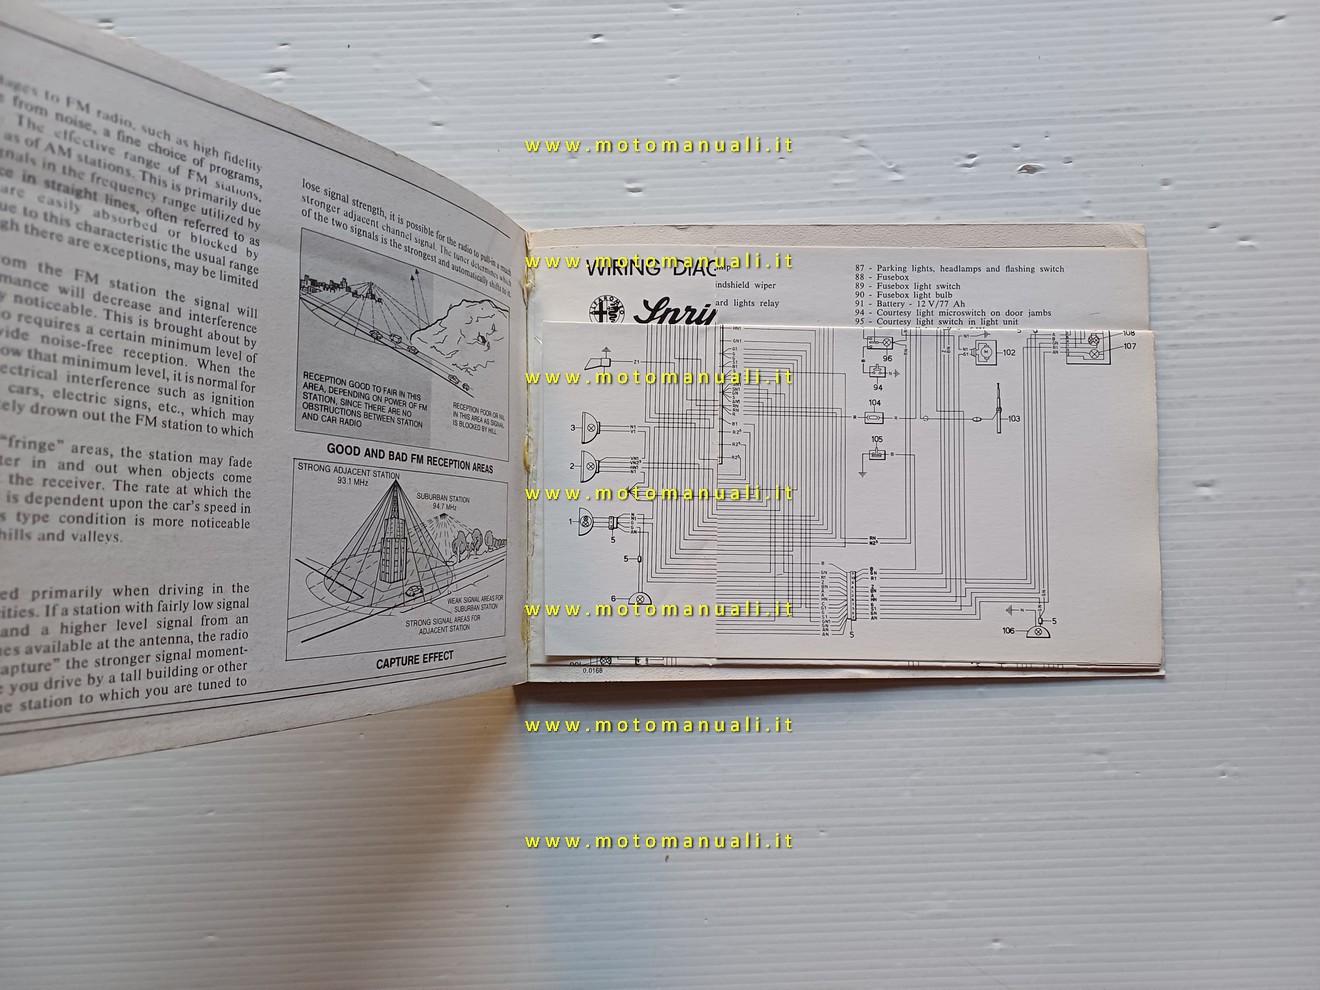 tages to FM radio, such as high fidelity
from noise, a fine choice of programs,
The effective range of FM stations,
as of AM stations. This is primarily due
gnals in the frequency range utilized by
ce in straight lines, often referred to as
are easily absorbed or blocked by
ue to this characteristic the usual range
gh there are exceptions, may be limited
rom the FM station the signal will
rmance will decrease and interference
y noticeable. This is brought about by
o requires a certain minimum level of
vide noise-free reception. When the
ow that minimum level, it is normal for
ectrical interference such as ignition
cars, electric signs, etc., which may
tely drown out the FM station to which
"fringe" areas, the station may fade
ter in and out when objects come
the receiver. The rate at which the
is dependent upon the car's speed in
s type condition is more noticeable
hills and valleys.
ed primarily when driving in the
ities. If a station with fairly low signal
and a higher level signal from an
nes available at the antenna, the radio
apture" the stronger signal moment-
e you drive by a tall building or other
ne station to which you are tuned to
lose signal strength, it is possible for the radio to pull-in a much
stronger adjacent channel signal. The tuner determines which
of the two signals is the strongest and automatically shifts to it.
RECEPTION GOOD TO FAIR IN THIS
AREA, DEPENDING ON POWER OF FM
STATION, SINCE THERE ARE NO
OBSTRUCTIONS BETWEEN STATION
AND CAR RADIO
RECEPTION POOR OR NIL
IN THIS AREA AS SIGNAL
IS BLOCKED BY HILL
GOOD AND BAD FM RECEPTION AREAS
STRONG ADJACENT STATION
93.1 MHz
SUBURBAN STATION
94.7 MHz
WEAK SIGNAL AREAS FOR
SUBURBAN STATION
STRONG SIGNAL AREAS FOR
ADJACENT STATION
CAPTURE EFFECT
WIRING DIAG
Spri
indshield wiper
ard lights relay
87 - Parking lights, headlamps and flashing switch
88 - Fusebox
89 - Fusebox light switch
90 - Fusebox light bulb
91 - Battery - 12 V/77 Ah
94 - Courtesy light microswitch on door jambs
95 - Courtesy light switch in light unit
21
3
2
1
5
5
6
96
94
104
105
102
103
108
107
5
106
5
0.0168
www.motomanuali.it
www.motomanuali.it
www.motomanuali.it
www.motomanuali.it
www.motomanuali.it
www.motomanuali.it
www.motomanuali.it